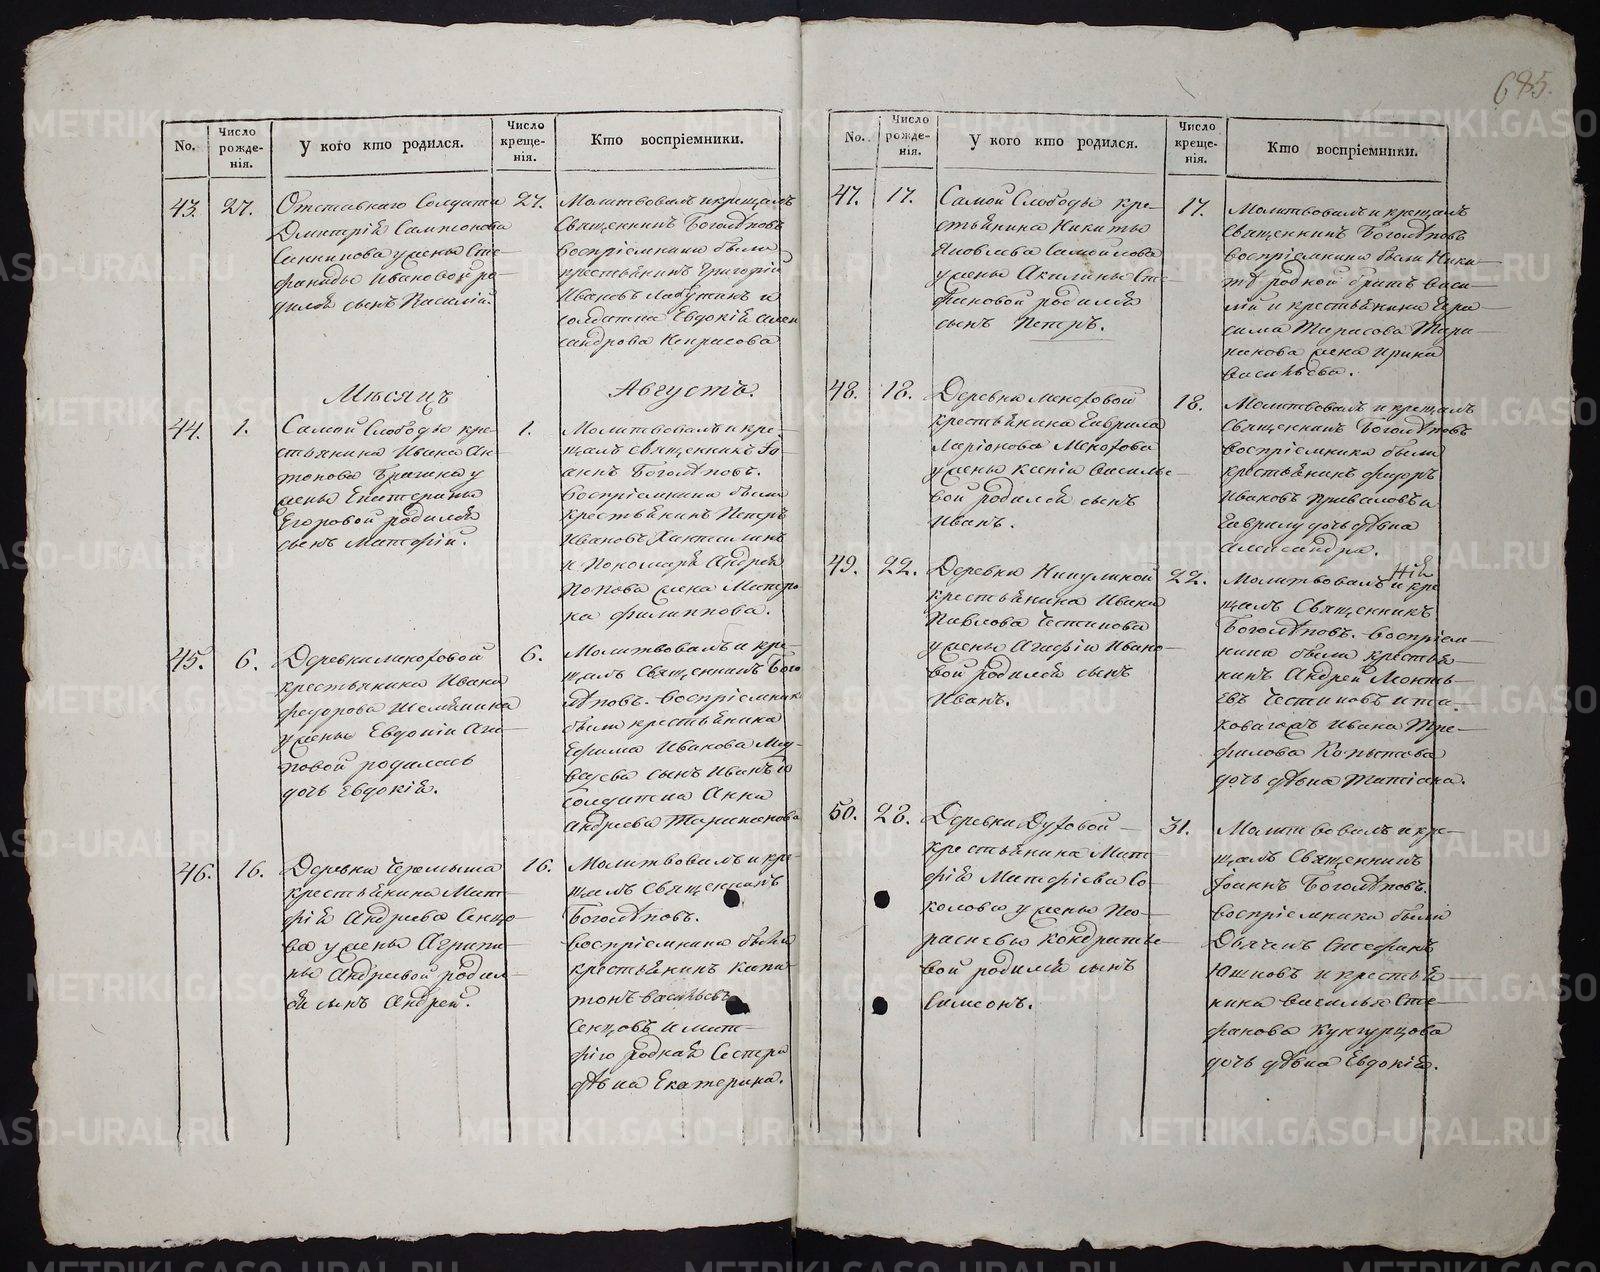 685.
No.
Число рожде-нія.
У кого кто родился.
Число креще-нія.
Кто воспріемники.
43.
27.
Отставнаго Солдата
Дмитрія Сампсонова
Санникова у жены Сте-
фаниды Ивановой ро-
дился сынъ Василій.
27.
Молитвовалъ и крещалъ
Священникъ Боголѣповъ
воспріемники были
крестьянинъ Григорій
Ивановъ Лабутинъ и
солдатка Евдокія Алек
сандрова Некрасова
Мѣсяцъ
Августъ.
44.
1.
Самой Слободы кре-
стьянина Ивана Ан-
тонова Брагина у
жены Екатерины
Егоровой родился
сынъ Матфій.
1.
Молитвовалъ и кре-
щалъ священникъ Іо-
аннъ Боголѣповъ.
Воспріемники были
крестьянинъ Петръ
Ивановъ
и Пономаря Андрея
Попова жена Матро
на Филиппова.
45.
6.
Деревни Мокроховой
крестьянина Ивана
Федорова
у жены Евдокіи Ага-
повой родилась
дочь Евдокія.
6.
Молитвовалъ и кре-
щалъ Священникъ Бого
лѣповъ. Воспріемник
были крестьянина
Ефима Иванова Мед-
вѣдева сынъ Иванъ и
Солдатка Анна
Андреева
46.
16.
Деревни Черемыша
крестьянина Мат-
фія Андреева Сенцо-
ва у жены Агрипи-
ны Андреевой родил-
ся сынъ Андрей.
16.
Молитвовалъ и кре-
щалъ Священникъ
Боголѣповъ.
Воспріемники были
крестьянинъ Капи-
тонъ Васильевъ
Сенцовъ и Мат-
фію родная Сестра
дѣвка Екатерина.
No.
Число рожде-нія.
У кого кто родился.
Число креще-нія.
Кто воспріемники.
47.
17.
Самой Слободы кре-
стьянина Никиты
Яковлева Самойлова
у жены Акилины Сте-
фановой родился
сынъ Петръ.
17.
Молитвовалъ и крещалъ
Священникъ Боголѣповъ
воспріемники были Ники-
тѣ родной братъ Васи-
лій и крестьянина Гера-
сима Тарасова Тара-
канова жена Ирина
Васильева.
48.
18.
Деревни Мокроховой
крестьянина Гаврила
Ларіонова Мокрохова
у жены Ксеніи Василье-
вой родился сынъ
Иванъ.
18.
Молитвовалъ и крещалъ
Священникъ Боголѣповъ
воспріемники были
крестьянинъ Федоръ
Ивановъ Приваловъ и
Гаврилу дочь дѣвка
Александра.
49.
22.
Деревни Никулиной
крестьянина Ивана
Павлова Честикова
у жены Агафіи Ивано-
вой родился сынъ
Иванъ.
22.
Молитвовалъ и кре
щалъ Священникъ
Боголѣповъ. Воспріем-
ники были крестья-
нинъ Андрей Леонть-
евъ Честиковъ и та-
коваго жъ Ивана Тре-
филова Копытова
дочь дѣвка Татіана.
50.
28.
Деревни Духовой
крестьянина Мат-
фія Матфіева Со-
колова у жены Па-
расковьи Кондратье-
вой родился сынъ
Симеонъ.
31.
Молитвовалъ и кре-
щалъ Священникъ
Іоаннъ Боголѣповъ.
Воспріемники были
Дьячекъ Стефанъ
Юшковъ и крестья-
нина Василья Сте-
фанова Кунгурцова
дочь дѣвка Евдокія.
METRIKI.GASO-URAL.RU